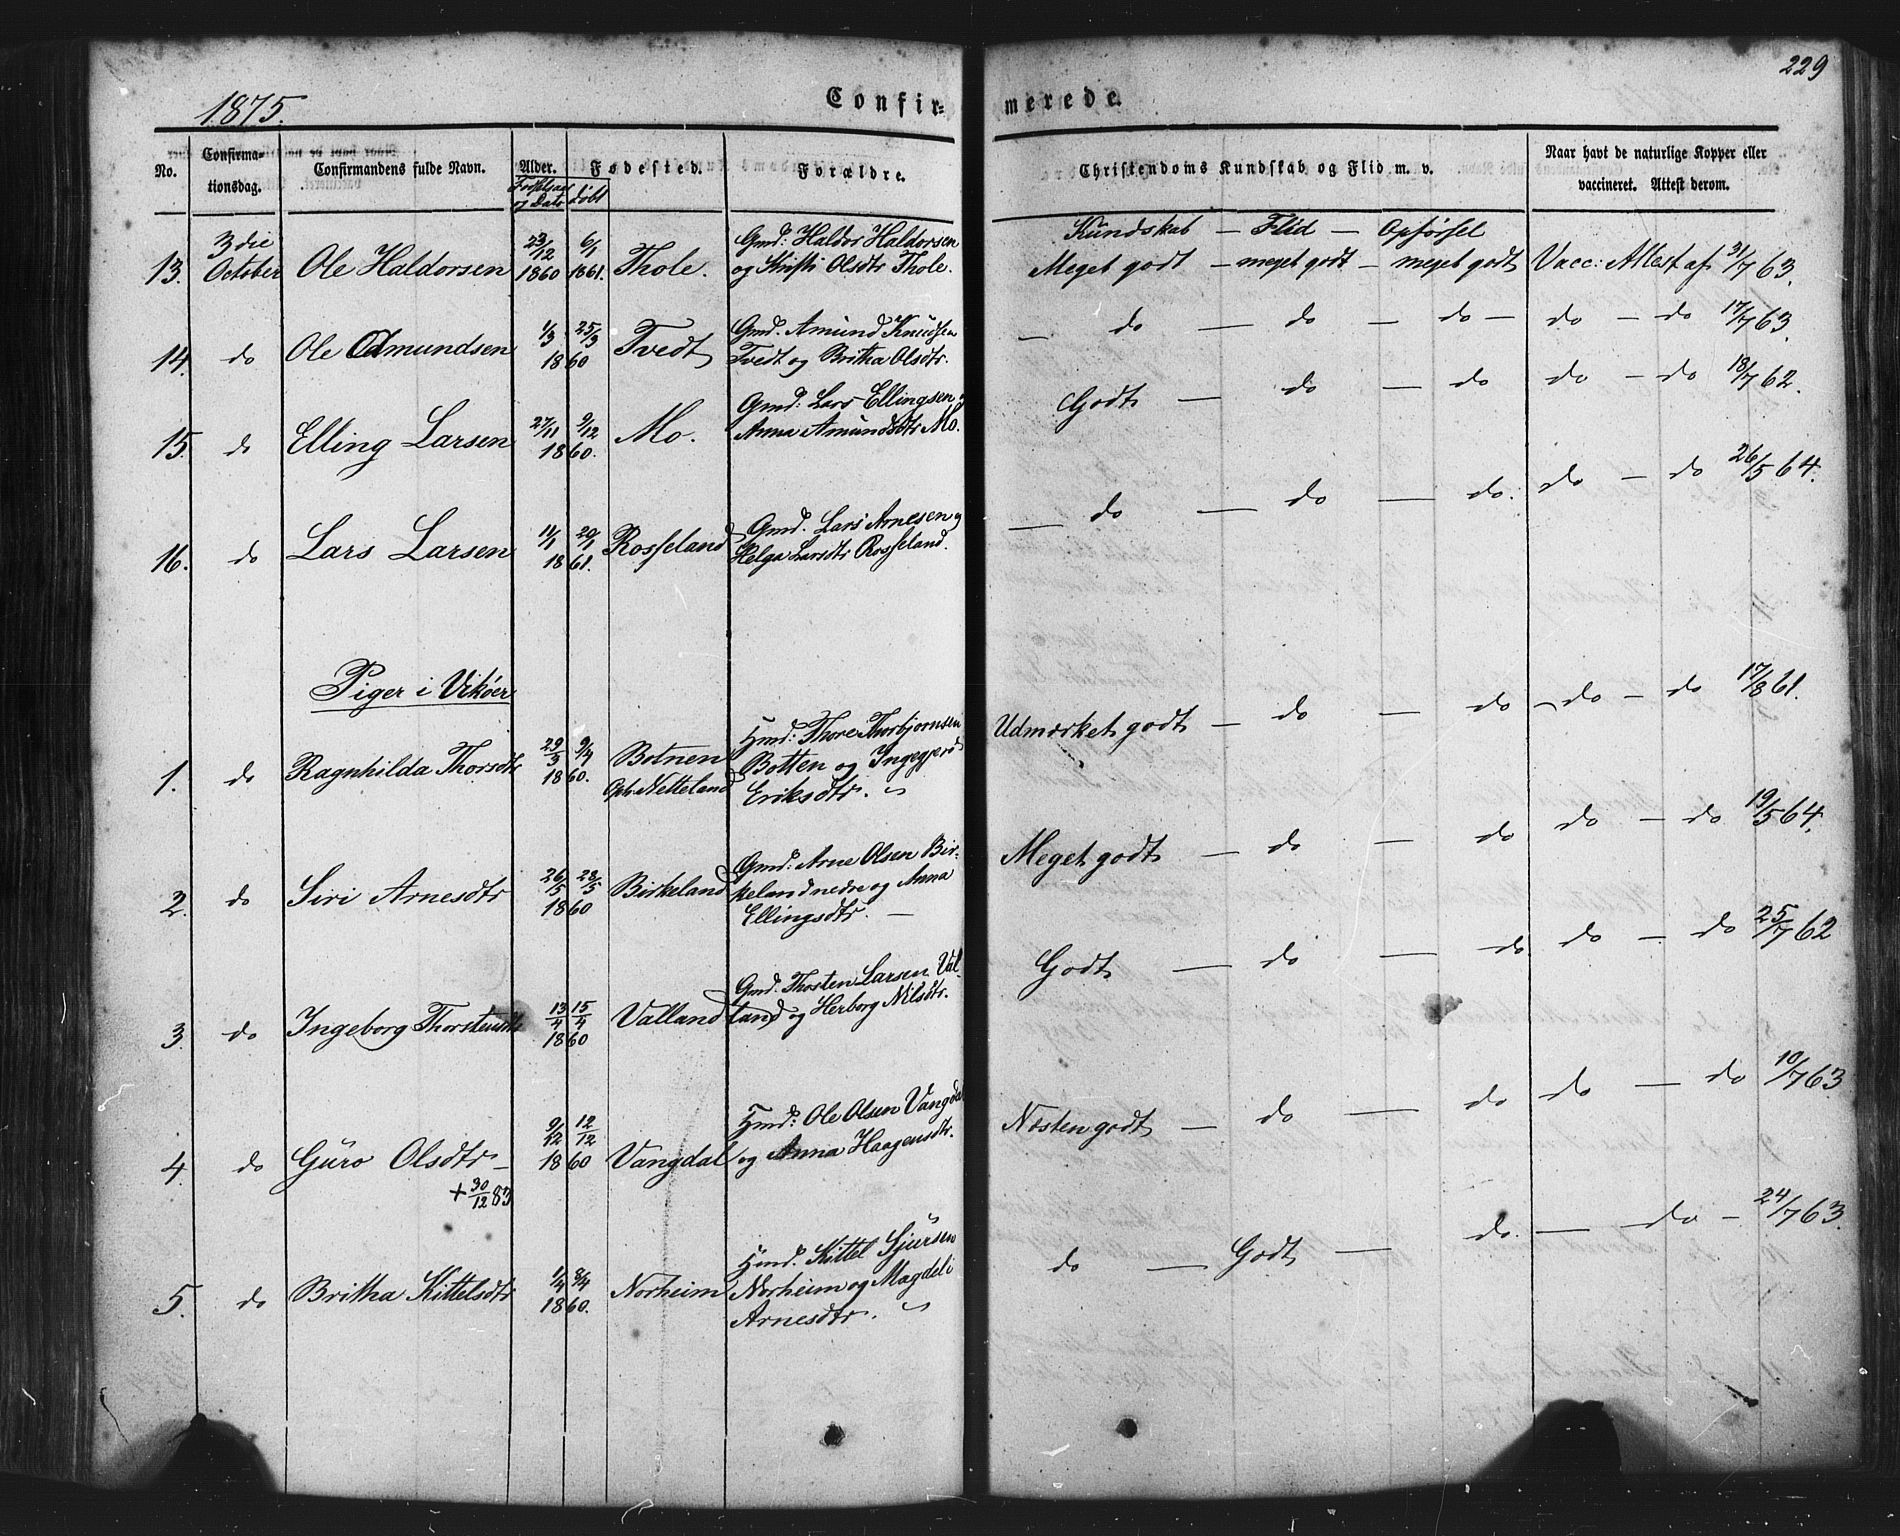 229
1875.
Confir=
merede.
No.
Confirma-
tionsdag.
Confirmandens fulde Navn.
Alder.
Fødselsaar
og Dato
døbt
Fødested.
Forældre.
Christendoms Kundskab og Flid m. v.
Naar havt de naturlige Kopper eller
vaccineret. Attest derom.
Kundskab — Flid — Opførsel
13. 3die October Ole Haldorsen 23/12 1860 6/1 1861. Thole. Gmd: Haldor Haldorsen
og Kristi Olsdtr Thole.
Meget godt — meget godt — meget godt Vacc: Attest af 31/7 63.
14. do Ole Amundsen 1/3 25/3 1860 Tvedt Gmd. Amund Knudsen
Tvedt og Britha Olsdtr.
— do — do — do — do — do 17/7 63.
15. do Elling Larsen 27/11 9/12 1860. Mo. Gmd: Lars Ellingsen
Anna Amundsdtr Mo.
Godt — do — do do — do 18/7 62.
16. do Lars Larsen 11/1 20/1 1861. Rosseland Gmd. Lars Arnesen og
Helga Larsdtr Rosseland.
— do — do — do. do — do 26/5 64.
Piger i Vikøer
1. do Ragnhilda Thorsdtr 29/3 9/4 1860. Botnen
Oph: Netteland
Hmd: Thore Thorbjornsen
Botten og Ingegjerd
Eriksdtr.
Udmærket godt — do — do — do — do 17/8 61.
2. do Siri Arnesdtr 26/5 28/5 1860 Birkeland Gmd: Arne Olsen Bir-
keland nedre og Anna
Ellingsdtr. —
Meget godt — do — do do — do 19/5 64.
3. do Ingeborg Thorstensdtr 13/4 15/4 1860 Valland Gmd. Thosten Larsen Val-
land og Herborg Nilsdtr.
Godt — do — do do — do 25/7 62
4. do Guro Olsdtr — 9/12 12/12 1860 Vangdal Hmd: Ole Olsen Vangdal
og Anna Haagensdtr.
+ 30/12 83
Næsten godt — do — do do — do 10/7 63
5. do Britha Kittelsdtr 1/4 8/4 1860. Norheim Hmd. Kittel Sjursen
Norheim og Magdeli
Arnesdtr.
do — Godt — do. — do — 24/7 63.